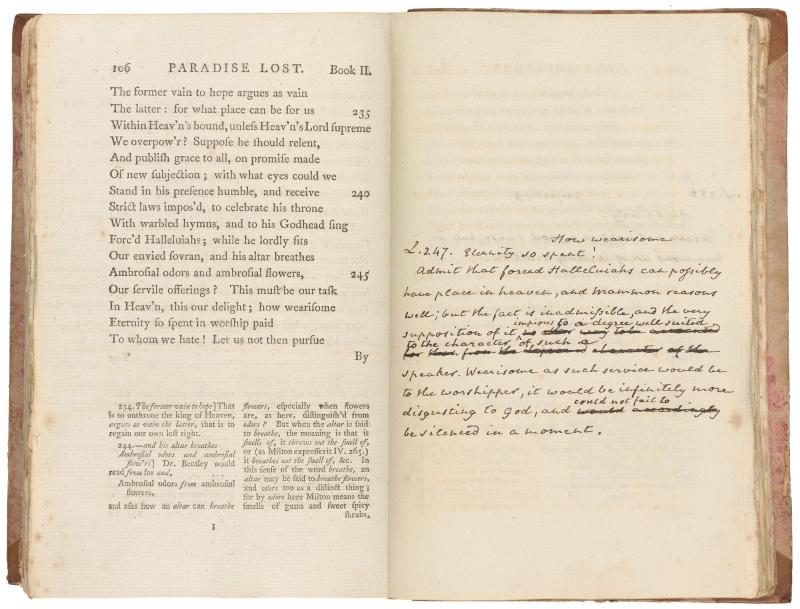 106 PARADISE LOST. Book II.
The former vain to hope argues as vain
The latter: for what place can be for us 235
Within Heav'n's bound, unleſs Heav'n's Lord ſupreme
We overpow'r? Suppoſe he ſhould relent,
And publiſh grace to all, on promiſe made
Of new ſubjection; with what eyes could we
Stand in his preſence humble, and receive 240
Strict laws impos'd, to celebrate his throne
With warbled hymns, and to his Godhead ſing
Forc'd Halleluiahs; while he lordly ſits
Our envied ſovran, and his altar breathes
Ambroſial odors and ambroſial flowers, 245
Our ſervile offerings? This muſt be our taſk
In Heav'n, this our delight; how weariſome
Eternity ſo ſpent in worſhip paid
To whom we hate! Let us not then purſue
By
234. The former vain to hope] That
is to unthrone the king of Heaven,
argues as vain the latter, that is to
regain our own loſt right.
244.—and his altar breathes
Ambroſial odors and ambroſial
flow'rs] Dr. Bentley would
read from for and,
Ambroſial odors from ambroſial
flowers,
and aſks how an altar can breathe
flowers, eſpecially when flowers
are, as here, diſtinguiſh'd from
odors? But when the altar is ſaid
to breathe, the meaning is that it
ſmells of, it throws out the ſmell of,
or (as Milton expreſſes it IV. 265.)
it breathes out the ſmell of, &c. In
this ſenſe of the word breathe, an
altar may be ſaid to breathe flowers,
and odors too as a diſtinct thing;
for by odors here Milton means the
ſmells of gums and ſweet ſpicy
ſhrubs.
I
How wearisome
L. 247. Eternity so spent!
Admit that forced Halleluiahs can possibly
have place in heaven, and Mammon reasons
well; but the fact is inadmissible, and the very
impious to a degree well suited
supposition of it
to the character of such a
speaker. Wearisome as such service would be
to the worshipper, it would be infinitely more
could not fail to
disgusting to God, and would accordingly
be silenced in a moment.